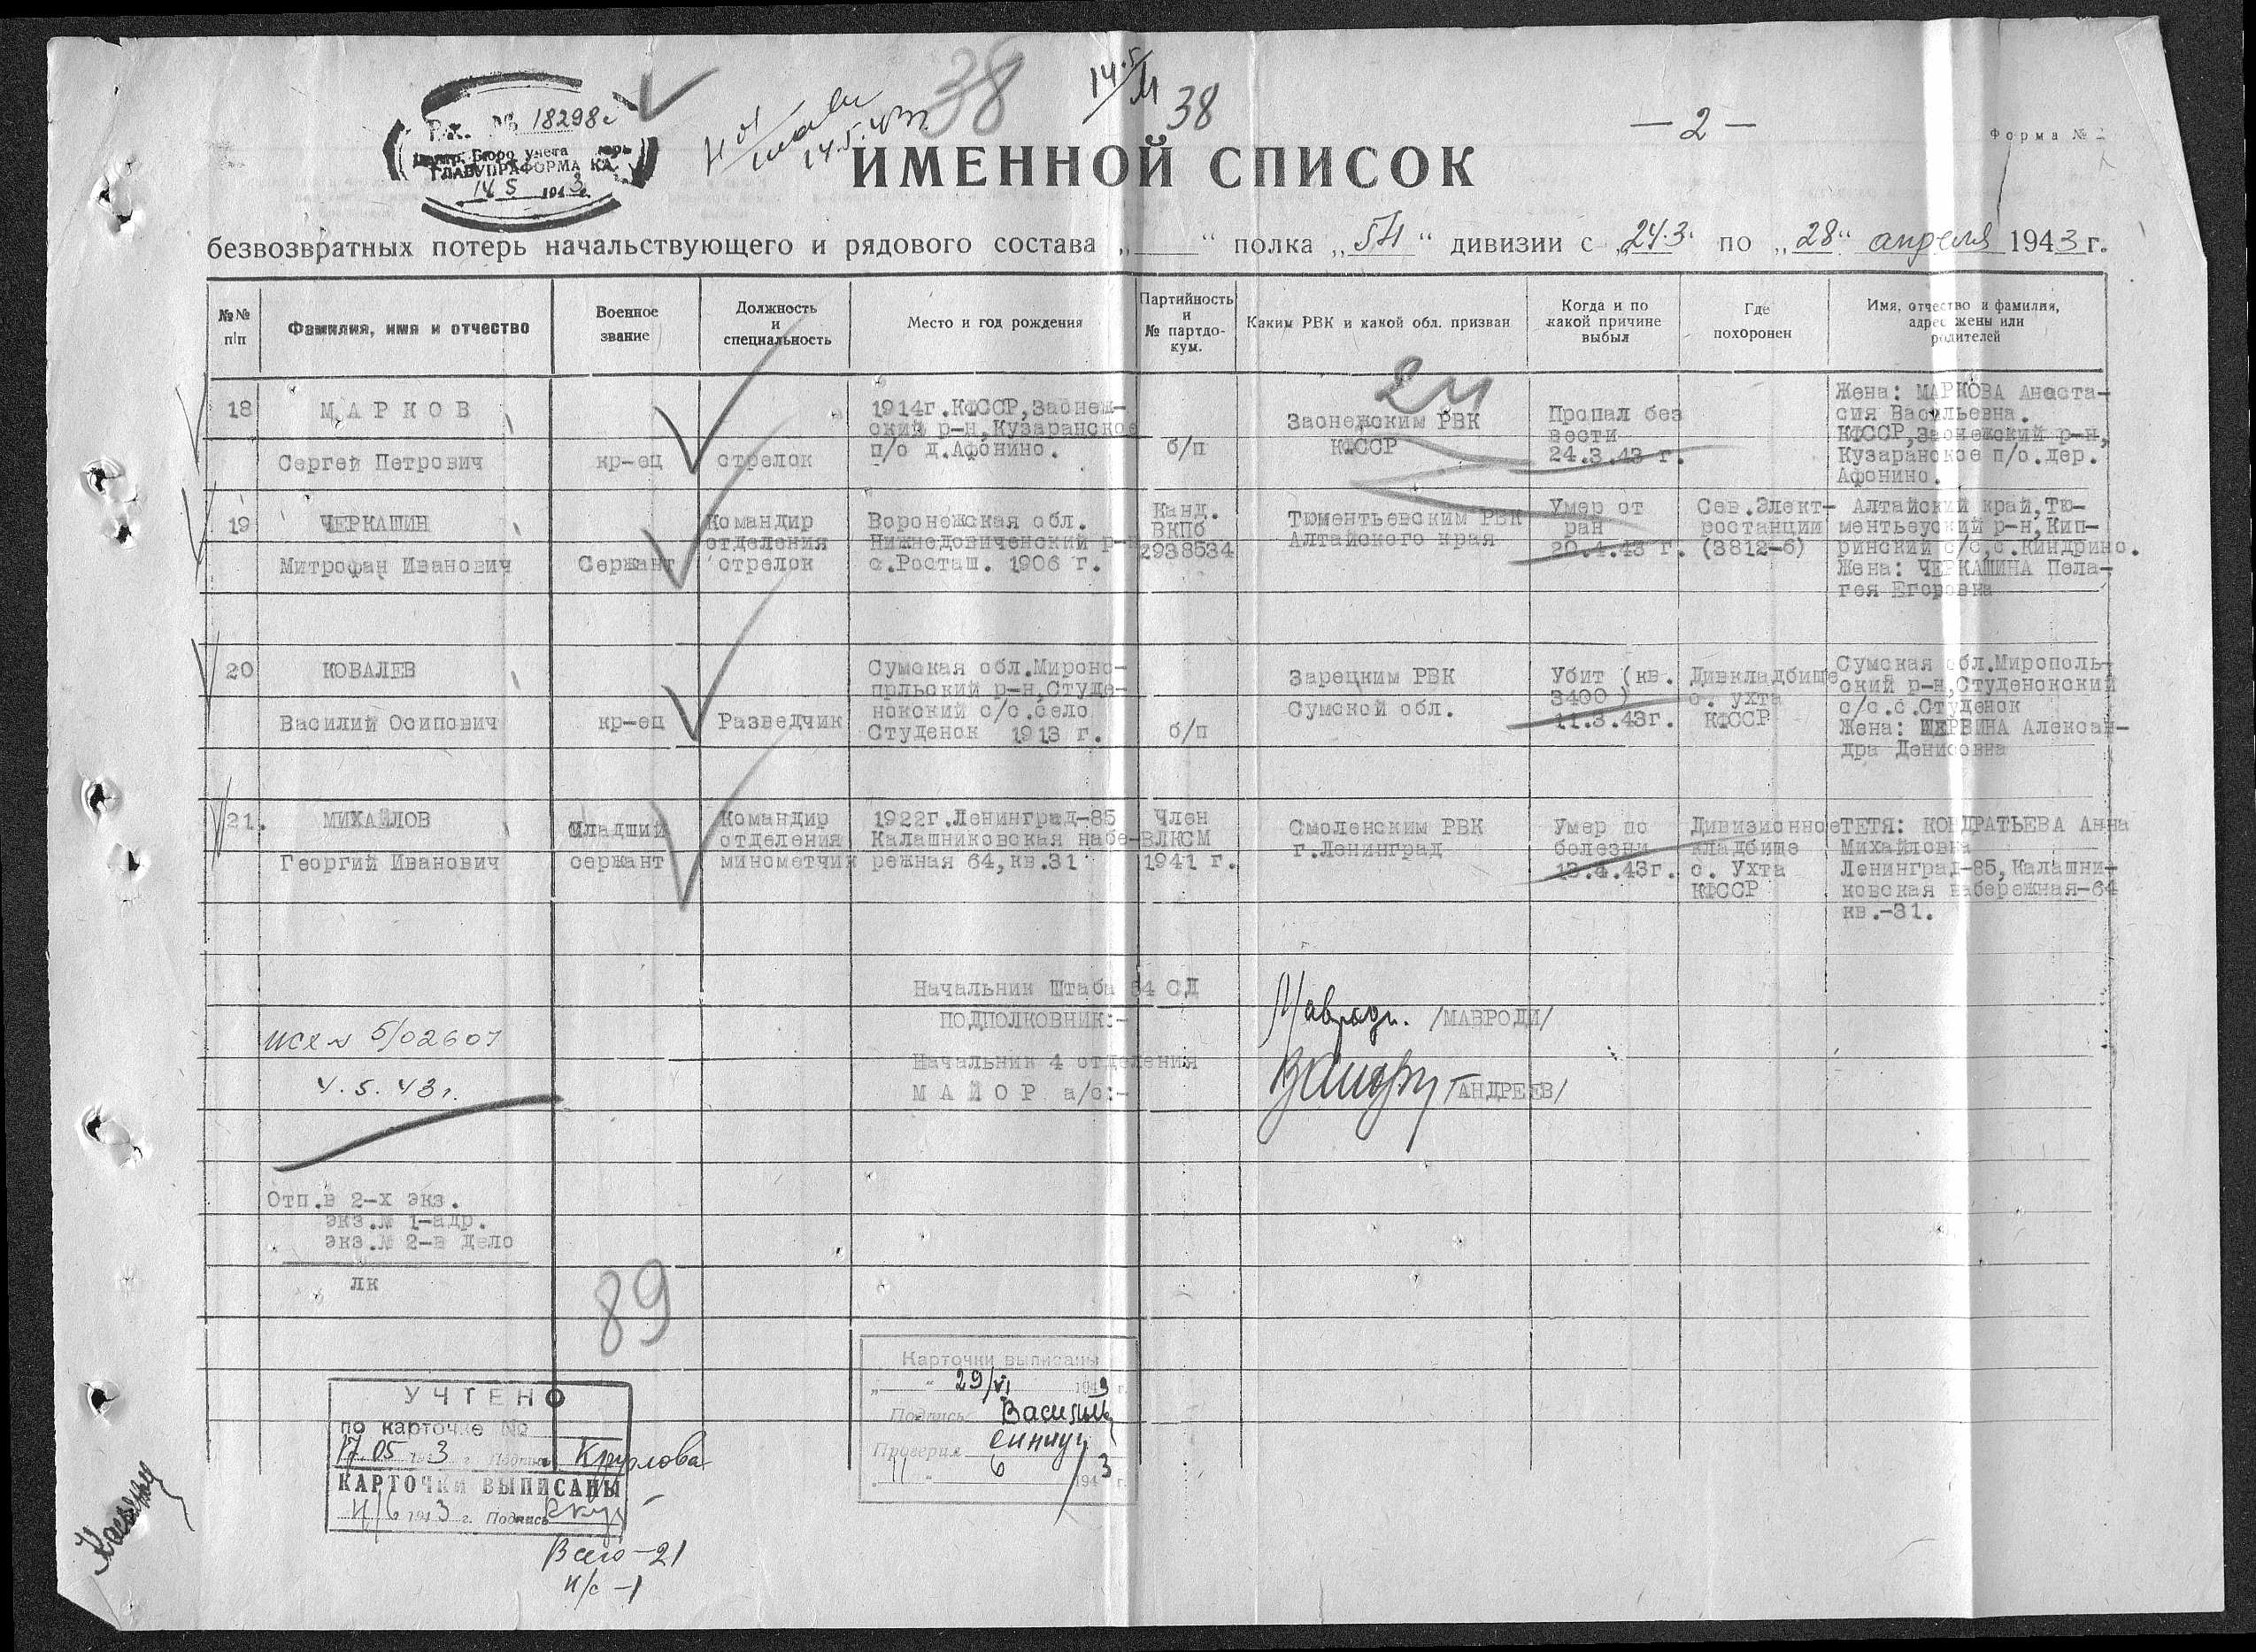 18298с
Центр. Бюро учета
ГЛАВУПРАФОРМА КА
14 5 1943 г.
14.5.43г.
38
14.5
38
— 2 —
Форма № 2
ИМЕННОЙ СПИСОК
безвозвратных потерь начальствующего и рядового состава „ “ полка „54“ дивизии с „24.3“ по „28“ апреля 1943 г.
№№ п|п
Фамилия, имя и отчество
Военное звание
Должность и специальность
Место и год рождения
Партийность и № партдокум.
Каким РВК и какой обл. призван
Когда и по какой причине выбыл
Где похоронен
Имя, отчество и фамилия, адрес жены или родителей
24
18
МАРКОВ
Сергей Петрович
кр-ец
стрелок
1914г.КФССР,Заонеж-
ский р-н,Кузаранское
п/о д.Афонино.
б/п
Заонежским РВК
КФССР
Пропал без
вести
24.3.43 г.
Жена: МАРКОВА Анаста-
сия Васильевна.
КФССР,Заонежский р-н,
Кузаранское п/о.дер.
Афонино.
19
ЧЕРКАШИН
Митрофан Иванович
Сержант
Командир
отделения
стрелок
Воронежская обл.
Нижнедовиченский р-н
с.Росташ. 1906 г.
Канд.
ВКПб
2938534
Тюментьевским РВК
Алтайского края
Умер от
ран
20.4.43 г.
Сев.Элект-
ростанции
(3812-б)
Алтайский край,Тю-
ментьеуский р-н,Кип-
ринский с/с,с.Киндрино.
Жена: ЧЕРКАШИНА Пела-
гея Егоровна
20
КОВАЛЕВ
Василий Осипович
кр-ец
Разведчик
Сумская обл.Мироно-
прльский р-н,Студе-
нокский с/с.село
Студенок 1913 г.
б/п
Зарецким РВК
Сумской обл.
Убит (кв.
3400)
11.3.43г.
Дивкладбище
с. Ухта
КФССР
Сумская обл.Мирополь-
ский р-н,Студенокский
с/с.с.Студенок
Жена: ШЕРВИНА Алексан-
дра Денисовна
21.
МИХАЙЛОВ
Георгий Иванович
Младший
сержант
Командир
отделения
минометчик
1922г.Ленинград-85
Калашниковская набе-
режная 64,кв.31
Член
ВЛКСМ
1941 г.
Смоленским РВК
г.Ленинград
Умер по
болезни
13.4.43г.
Дивизионное
кладбище
с. Ухта
КФССР
ТЕТЯ: КОНДРАТЬЕВА Анна
Михайловна
Ленинград-85,Калашни-
ковская набережная-64
кв.-31.
Начальник Штаба 54 СД
ПОДПОЛКОВНИК:-
Мавроди. /МАВРОДИ/
Начальник 4 отделения
МАЙОР а/с:-
/АНДРЕЕВ/
исх № 5/02601
4.5.43г.
Отп.в 2-х экз.
экз.№ 1-адр.
экз.№ 2-в Дело
лк
89
УЧТЕНО
по карточке №
17.05 1943 г. Подпись Круглова
КАРТОЧКИ ВЫПИСАНЫ
4/6 1943 г. Подпись
Всего - 21
н/с - 1
Карточки выписаны
„ “ 29/VI 1943 г.
Подпись
Проверил
„11“ 6 1943 г.